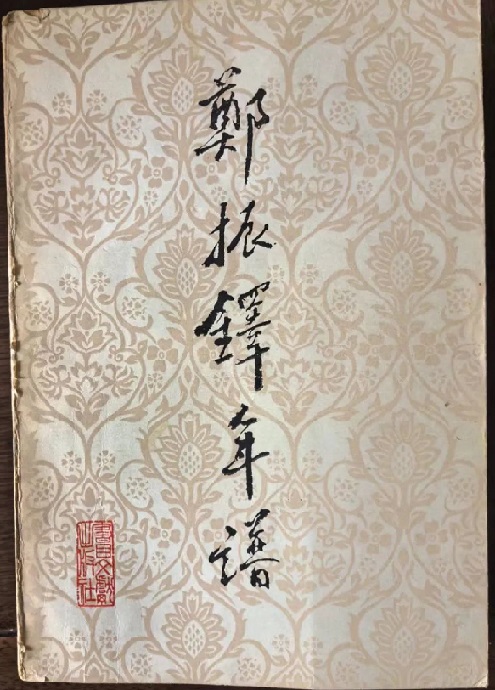 鄭振鐸年譜
書目文獻
出版社